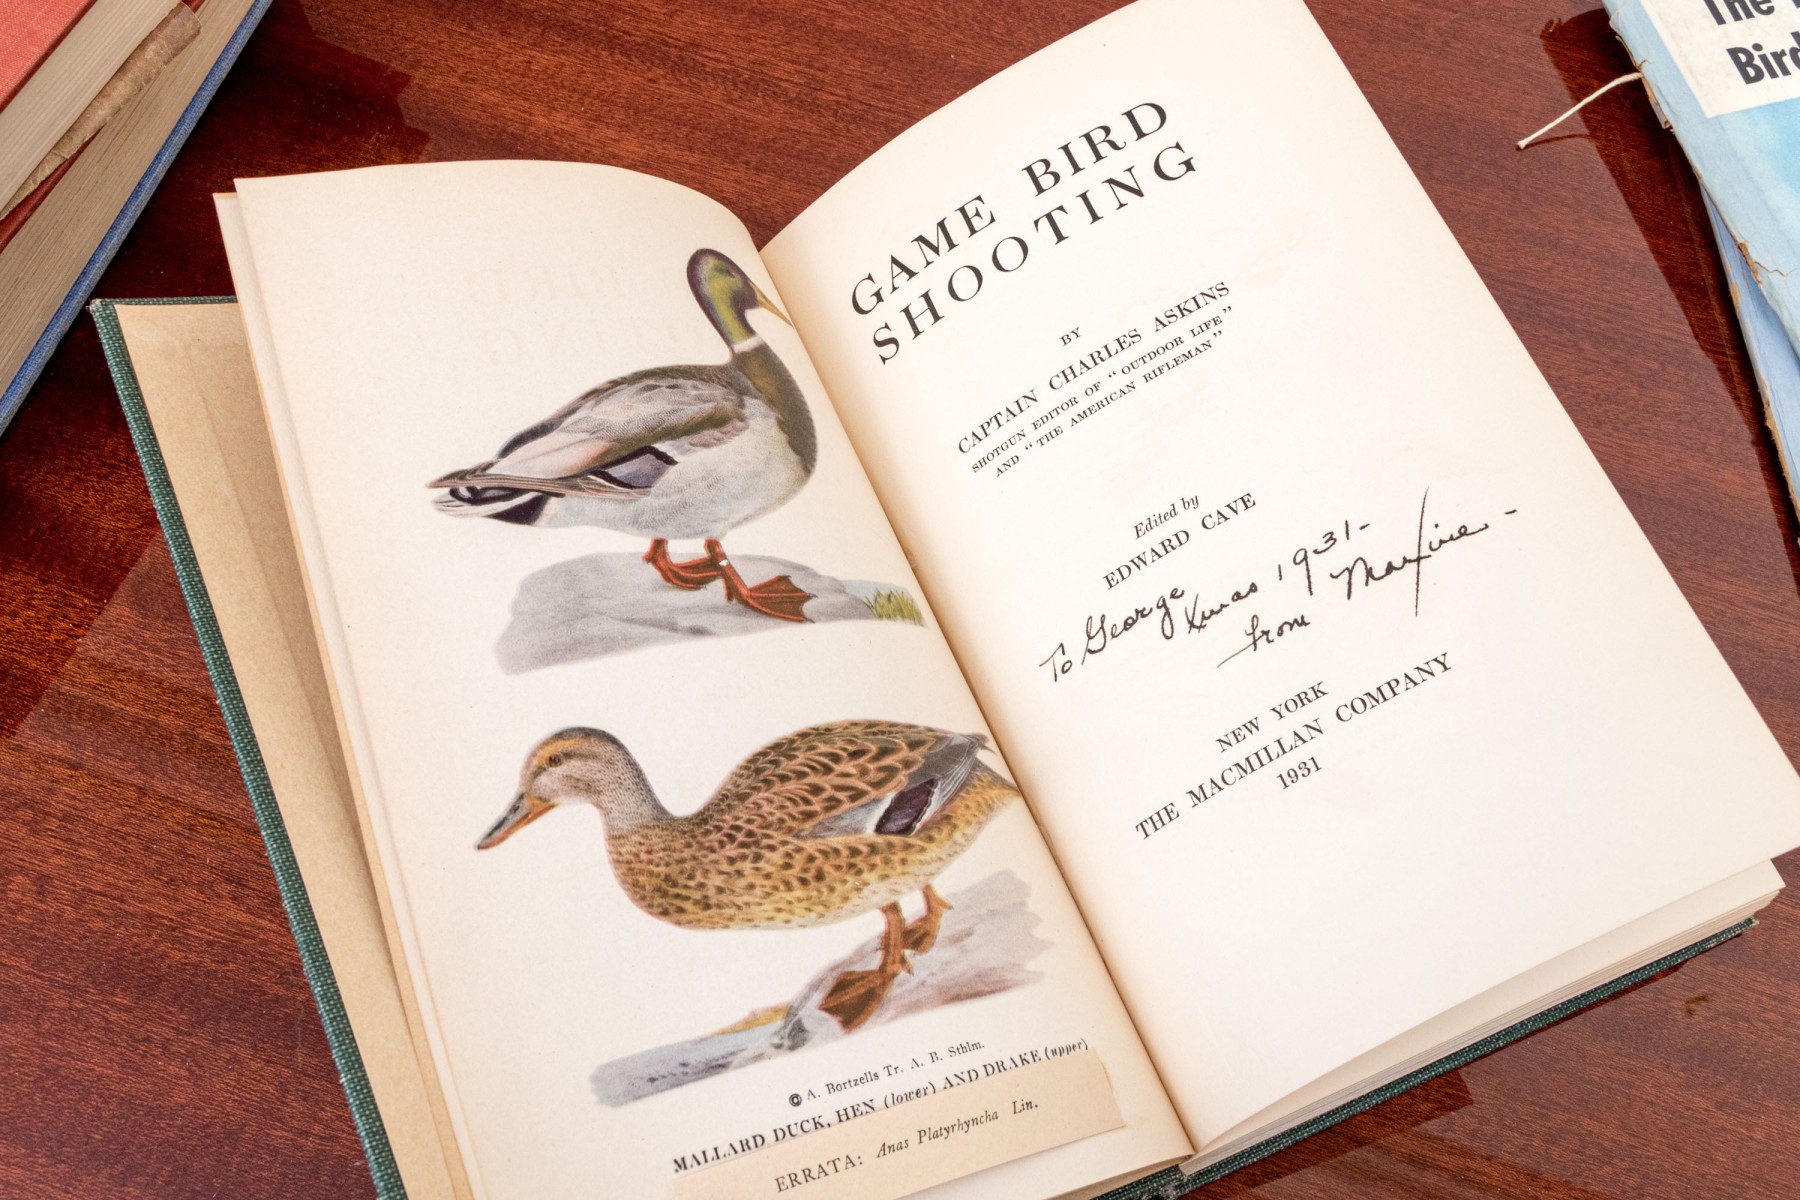 © A. Bortzells Tr. A. B. Sthlm.
MALLARD DUCK, HEN (lower) AND DRAKE (upper)
ERRATA: Anas Platyrhyncha Lin.
GAME BIRD
SHOOTING
BY
CAPTAIN CHARLES ASKINS
SHOTGUN EDITOR OF "OUTDOOR LIFE"
AND "THE AMERICAN RIFLEMAN"
Edited by
EDWARD CAVE
To George
Xmas 1931-
from Maxine-
NEW YORK
THE MACMILLAN COMPANY
1931
The
Bird